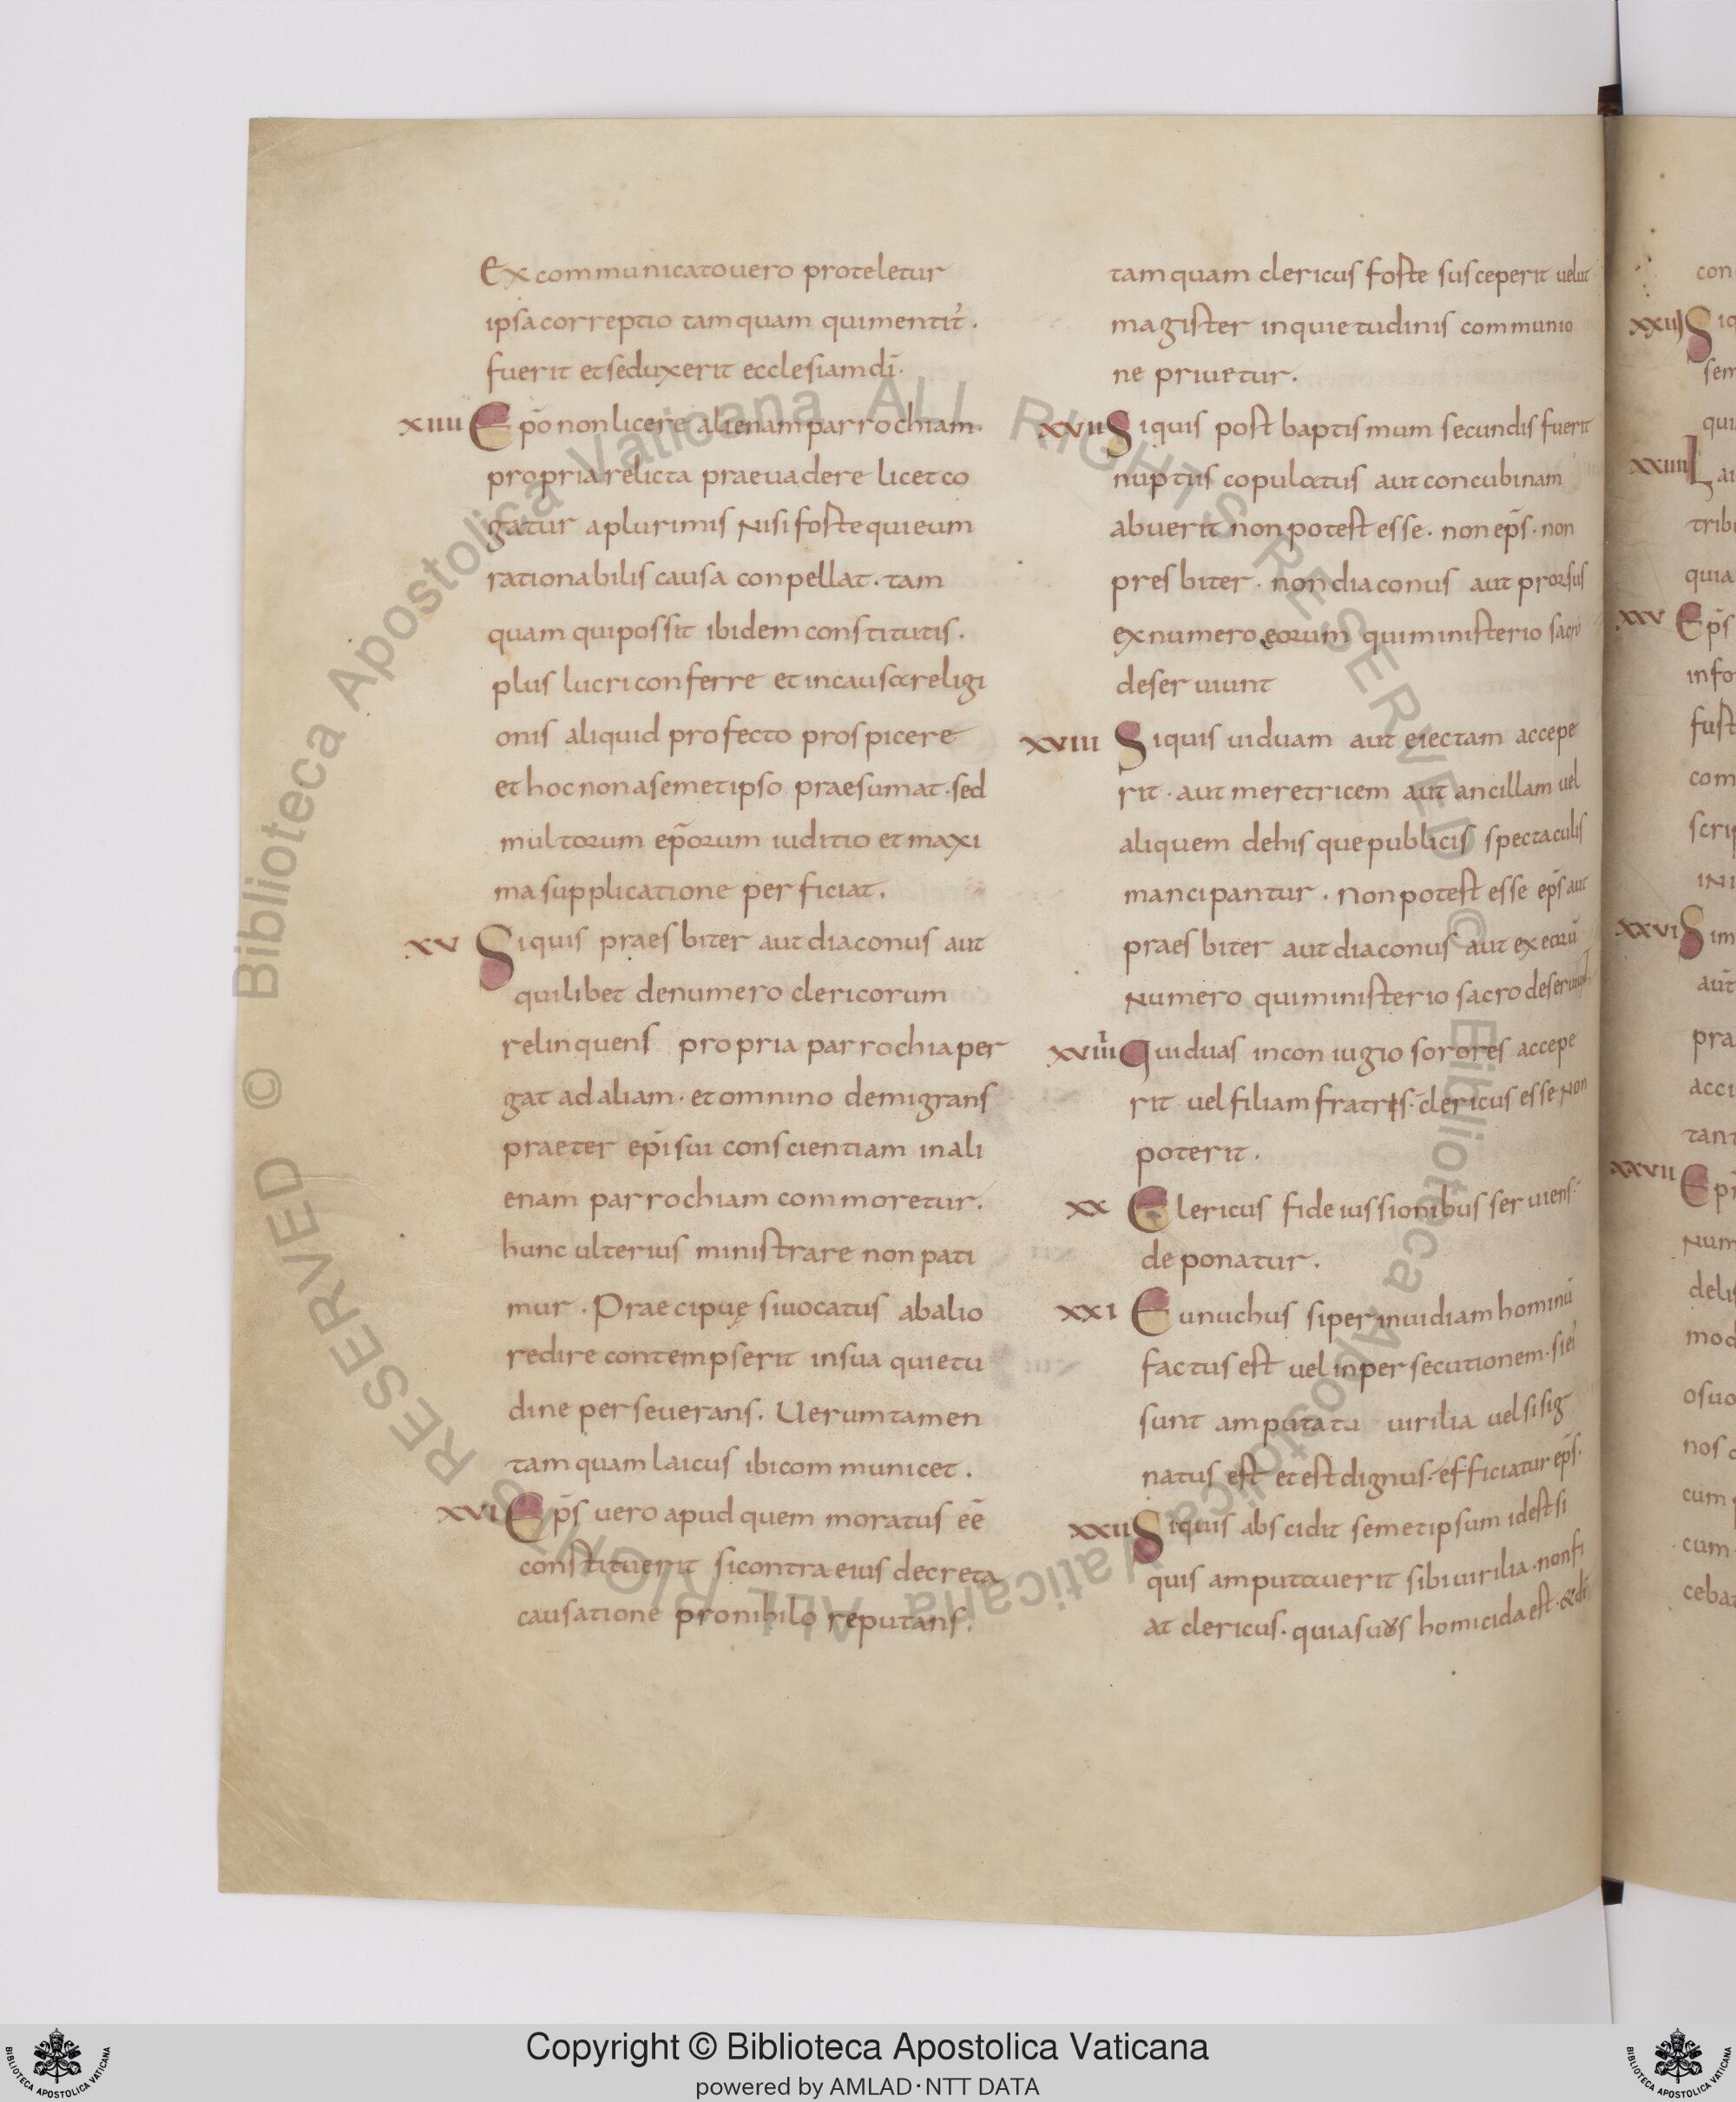 Excommunicato uero proteletur
ipsa correptio tamquam qui mentit᾽.
fuerit et seduxerit ecclesiam dī.
xiiii Epō non licere alienam parrochiam.
propria relicta praeuadere licet co
gatur a plurimis nisi foste qui eum
rationabilis causa conpellat. tam
quam qui possit ibidem constitutis.
plus lucri conferre et in causa religi
onis aliquid profecto prospicere
et hoc non a semetipso praesumat. sed
multorum ep̄orum iuditio et maxi
ma supplicatione perficiat.
xv Siquis praesbiter aut diaconus aut
quilibet de numero clericorum
relinquens propria parrochia per
gat ad aliam. et omnino demigrans
praeter ep̄i sui conscientiam in ali
enam parrochiam commoretur.
hunc ulterius ministrare non pati
mur. Praecipuę si uocatus ab alio
redire contempserit in sua quietu
dine perseuerans. Uerum tamen
tamquam laicus ibi communicet.
xvi Ep̄s uero apud quem moratus eē
constituerit si contra eius decreta
causatione pro nihilo reputans.
tamquam clericus foste susceperit uelut
magister inquietudinis communio
ne priuetur.
xvii Siquis post baptismum secundis fuerit
nuptiis copulatus aut concubinam
abuerit non potest esse. non ep̄s. non
presbiter. non diaconus aut prorsus
ex numero eorum qui ministerio sacro
deseruiunt
xviii Siquis uiduam aut eiectam accepe
rit. aut meretricem aut ancillam uel
aliquem de his que publicis spectaculis
mancipantur. Non potest esse ep̄s aut
praesbiter aut diaconus aut ex eorū
numero qui ministerio sacro deseruiunt.
xviiii Qui duas in coniugio sorores accepe
rit uel filiam fratris. clericus esse non
poterit.
xx Clericus fideiussionibus seruiens.
deponatur.
xxi Eunuchus si per inuidiam hominū
factus est uel in persecutionem. si ei᾽
sunt amputata uirilia uel si sig
natus est et est dignus. efficiatur ep̄s.
xxii Siquis abscidit semetipsum id est si
quis amputauerit sibi uirilia. non fi
at clericus. quia suus homicida est. & dī
con
xxiii Siq
sem
qui
xxiiii Lai
tribu
quia
xxv Ep̄s
info
fust
com
scrip
ini
xxvi Sim
aut
pra
acci
tan
xxvii Epi
num
delis
mod
osuo
nos
cum
cum
ceba
Copyright © Biblioteca Apostolica Vaticana
powered by AMLAD·NTT DATA
BIBLIOTECA APOSTOLICA VATICANA
BIBLIOTECA APOSTOLICA VATICANA
© Biblioteca Apostolica Vaticana ALL RIGHTS RESERVED © Biblioteca Apostolica Vaticana ALL RIGHTS RESERVED